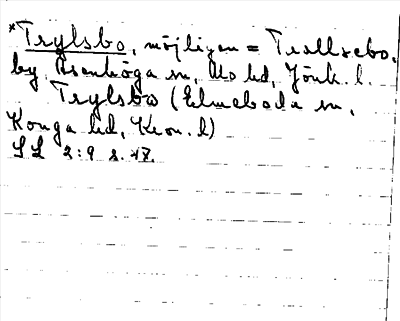 *Trylsbo, möjligen = Trollsebo,
by Åsenhöga sn, Mo hd, Jönk. l.
Trylsbo (Elmeboda sn,
Konga hd, Kron. l)
SL 2:9 s. 47.